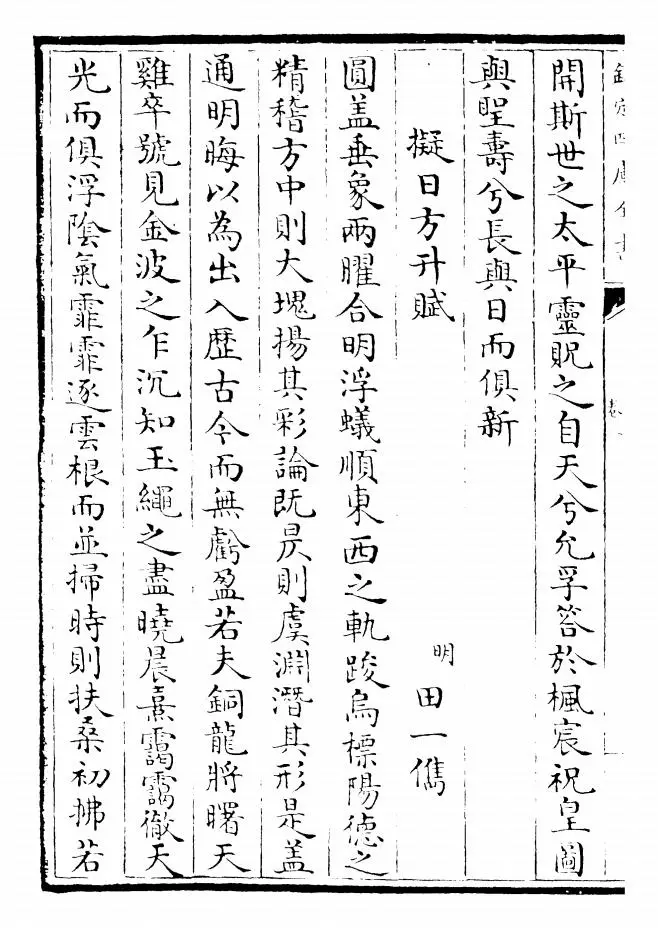 欽定四庫全書
卷一
開斯世之太平靈貺之自天兮允孚答於楓宸祝皇圖
與聖壽兮長與日而俱新
擬日方升賦
明 田一儁
圓盖垂象兩曜合明浮蟻順東西之軌踆烏標陽德之
精稽方中則大塊揚其彩論既昃則虞淵潛其形是盖
通明晦以為出入歴古今而無虧盈若夫銅龍將曙天
雞卒號見金波之乍沉知玉繩之盡曉晨熹靄靄徹天
光而俱浮陰氣霏霏逐雲根而並掃時則扶桑初拂若